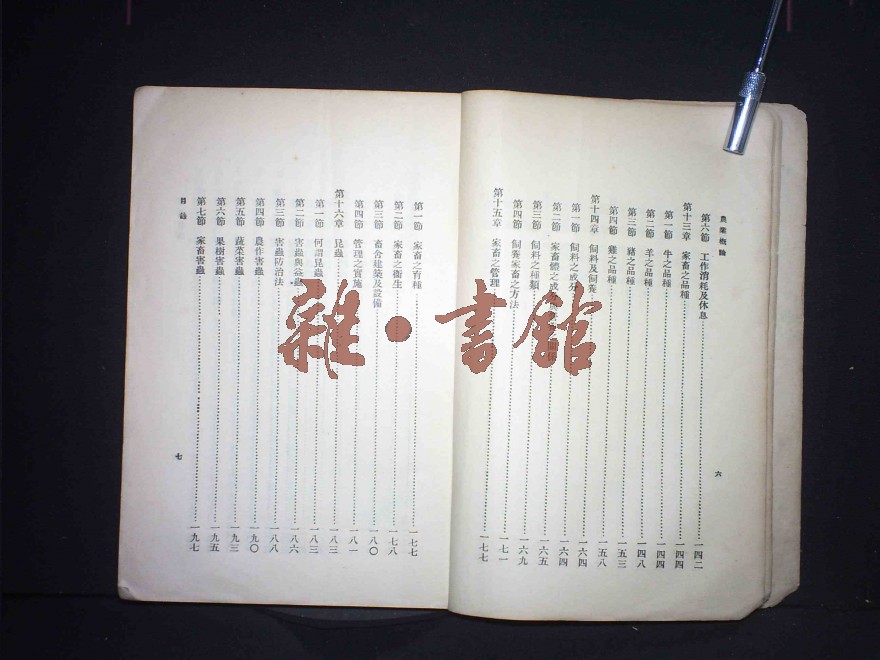 農業概論
第六節 工作消耗及休息 一四二
第十三章 家畜之品種 一四四
第一節 牛之品種 一四四
第二節 羊之品種 一四八
第三節 豬之品種 一五三
第四節 雞之品種 一五八
第十四章 飼料及飼養 一六四
第一節 飼料之成分 一六四
第二節 家畜體之成分 一六五
第三節 飼料之種類 一六九
第四節 飼養家畜之方法 一七一
第十五章 家畜之管理 一七七
六
第一節 家畜之育種 一七七
第二節 家畜之衞生 一七八
第三節 畜舍建築及設備 一八〇
第四節 管理之實施 一八一
第十六章 昆蟲 一八三
第一節 何謂昆蟲 一八三
第二節 害蟲與益蟲 一八六
第三節 害蟲防治法 一八八
第四節 農作害蟲 一九〇
第五節 蔬菜害蟲 一九三
第六節 果樹害蟲 一九五
第七節 家畜害蟲 一九七
目錄
七
雜·書館